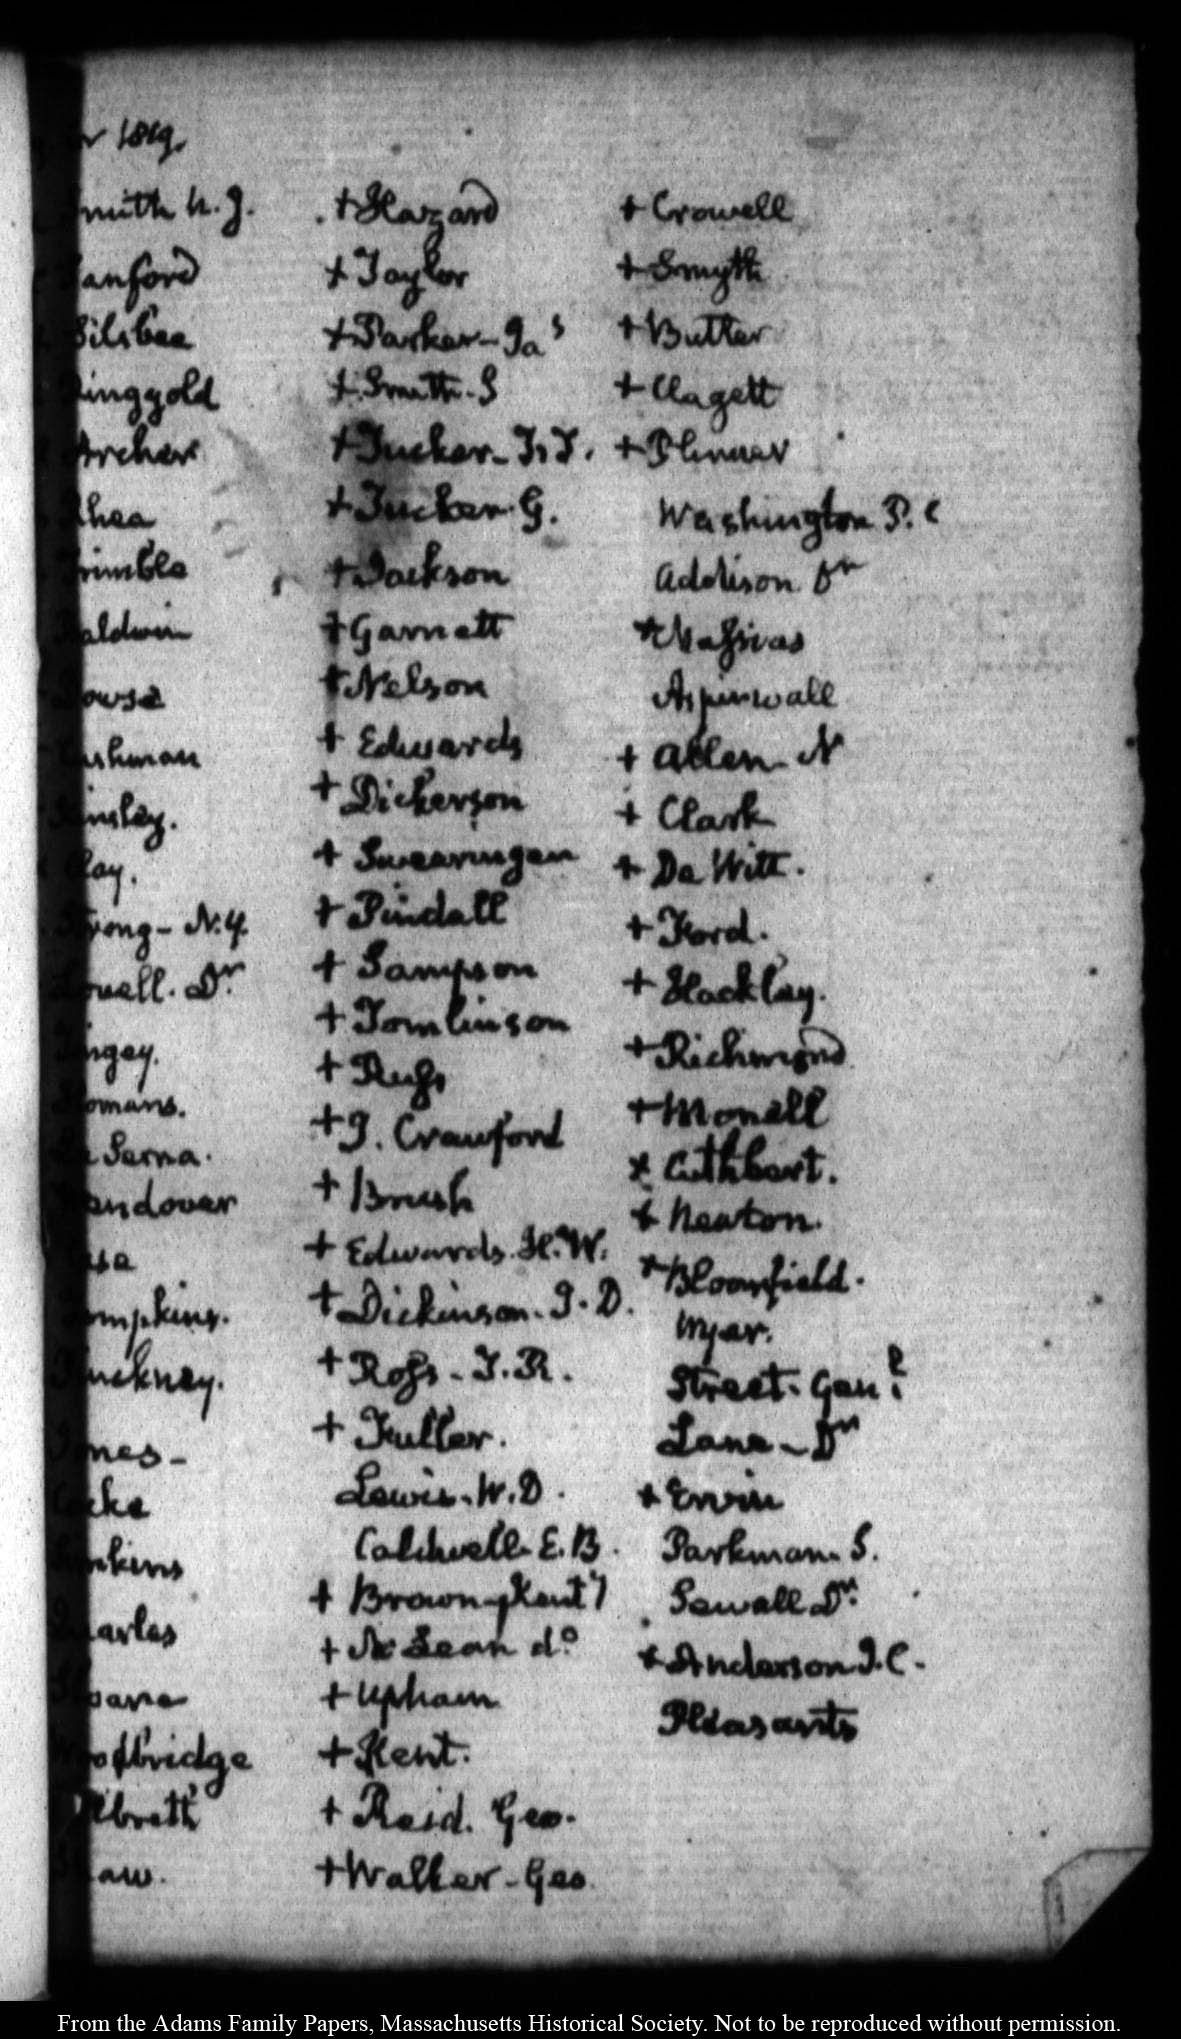 1819.
Smith N. J.
Sanford
Silsbee
Ringgold
Archer
Rhea
Trimble
Baldwin
Dowse
Cushman
Kinsley.
Clay.
Strong - N. Y.
Lovell. Dr.
Tingey.
Homans.
La Serna.
Vandover
Tompkins.
Pinckney.
Jones -
Cocke
Quarles
Sloane
Woodbridge
Shaw.
+ Hazard
+ Taylor
+ Parker - Jas
+ Smith. S
+ Tucker - T. T.
+ Tucker. G.
+ Jackson
+ Garnett
+ Nelson
+ Edwards
+ Dickerson
+ Swearingen
+ Pindall
+ Sampson
+ Tomlinson
+ Rugg
+ J. Crawford
+ Brush
+ Edwards. H. W.
+ Dickinson. J. D.
+ Ross - T. R.
+ Fuller.
Lewis. W. D.
Caldwell. E. B.
+ Brown - Kenty
+ McLean do
+ Upham
+ Kent.
+ Reid. Geo.
+ Walker - Geo
+ Crowell
+ Smyth
+ Butler
+ Clagett
+ Plumer
Washington P. C
Addison Dr
+ Massias
Aspinwall
+ Allen. N
+ Clark
+ De Witt.
+ Ford.
+ Hackley.
+ Richmond
+ Monell
+ Cuthbert.
+ Newton.
+ Bloomfield.
Myer.
Street. Genl.
Lane - Dr
+ Ervin
Parkman. S.
Sewall Dr.
+ Anderson J. C.
Pleasants
From the Adams Family Papers, Massachusetts Historical Society. Not to be reproduced without permission.